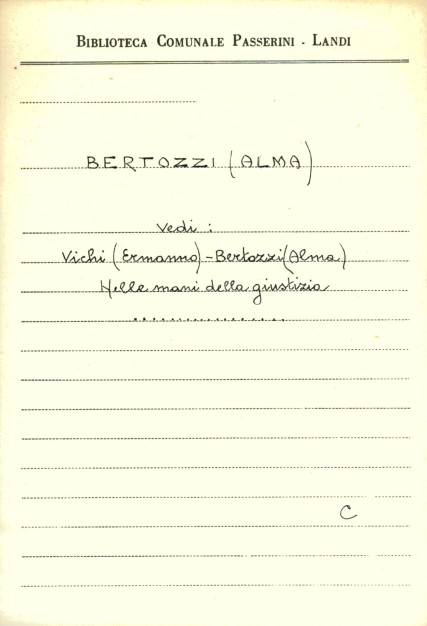 BIBLIOTECA COMUNALE PASSERINI - LANDI
BERTOZZI (ALMA)
Vedi :
Vichi (Ermanno) - Bertozzi (Alma)
Nelle mani della giustizia
.................
C